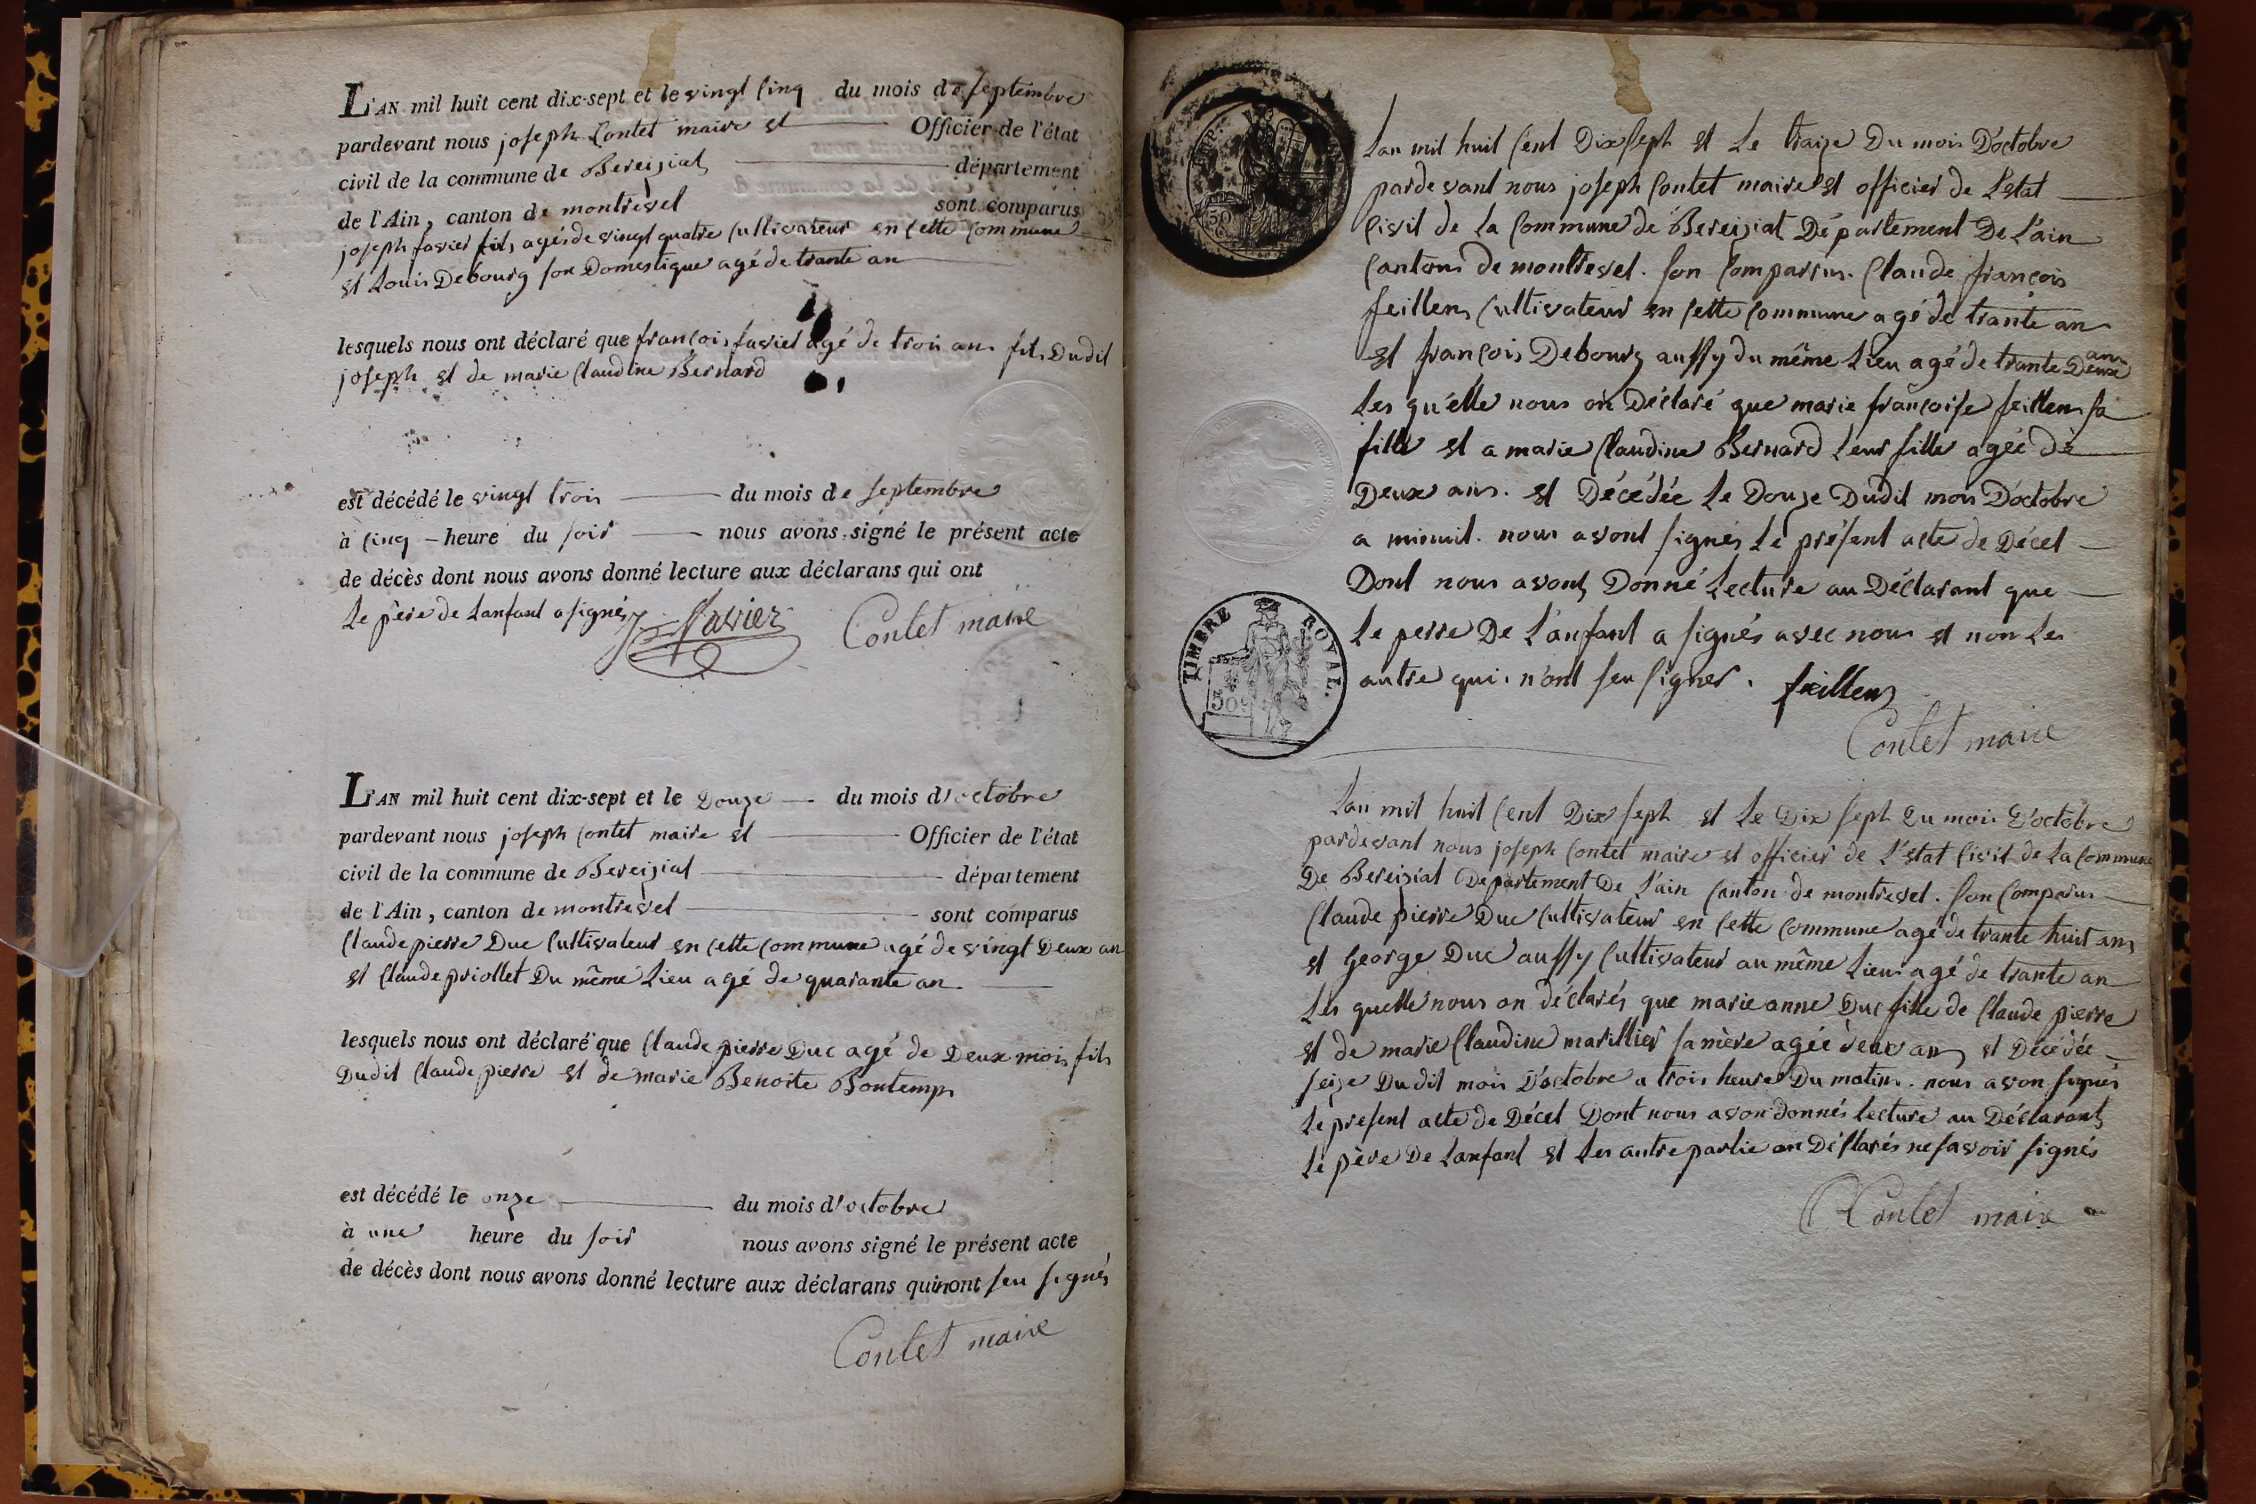 L'AN mil huit cent dix-sept et le vingt cinq du mois de septembre
pardevant nous joseph Contet maire et Officier de l'état
civil de la commune de Bereiziat département
de l'Ain, canton de montrevel sont comparus
joseph favier fils agés de vingt quatre Cultivateur en cette commune
et Louis Debourg son Domestique agé de trante an
lesquels nous ont déclaré que françois favier agé de trois ans fils Dudit
joseph et de marie Claudine Bernard
est décédé le vingt trois du mois de septembre
à cinq heure du soir nous avons signé le présent acte
de décès dont nous avons donné lecture aux déclarans qui ont
Le père de Lanfant a signés J. Favier Contet maire
L'AN mil huit cent dix-sept et le Douze du mois d'octobre
pardevant nous joseph Contet maire et Officier de l'état
civil de la commune de Bereiziat département
de l'Ain, canton de montrevel sont comparus
Claude pierre Duc Cultivateur en cette commune agé de vingt Deux an
et Claude priollet Du même Lieu agé de quarante an
lesquels nous ont déclaré que Claude pierre Duc agé de Deux mois fils
Dudit Claude pierre et de marie Benoite Bontemps
est décédé le onze du mois d'octobre
à une heure du soir nous avons signé le présent acte
de décès dont nous avons donné lecture aux déclarans qui n'ont seu signés
Contet maire
Lan mil huit Cent Dix Seph et Le traize Du mois D'octobre
parde vant nous joseph Contet maire et officier de L'estat
Civil de La Commune de Bereiziat Département De L'ain
Canton de montrevel. Son Comparus. Claude françois
feillens Cultivateur en Cette Commune agé de trante an
et françois Debourg aussy du même Lieu agé de trante Deux
ans
Les qu'elle nous on Déclaré que marie françoise feillens sa
fille et a marie Claudine Bernard Leur fille agée de
Deux ans. et Décédée Le Douze Dudit mois D'octobre
a minuit. nous avont signés Le présent acte de Décet
Dont nous avont Donné Lecture au Déclarant que
Le perre De L'anfant a signés avec nous et non Les
autre qui n'ont seu signer. feillens
TIMBRE ROYAL.
50c
Contet maire
Lan mil huit Cent Dix Seph et Le Dix Seph Du mois D'octobre
pardevant nous joseph Contet maire et officier de L'estat Civil de La Commune
De Bereiziat Département De L'ain Canton de montrevel. Son Comparus
Claude pierre Duc Cultivateur en Cette Commune agé de trante huit ans
et George Duc aussy Cultivateur au même Lieu agé de trante an
Les quelle nous on déclarés que marie anne Duc fille de Claude pierre
et de marie Claudine marillier sa mère agée deux ans et Décédée
seize Dudit mois D'octobre a trois heure Du matin. nous avon signés
Le present acte de Décet Dont nous avon donnés lecture au Déclarant
Le père De Lanfant et Les autre partie on Déclarés ne savoir signés
Contet maire